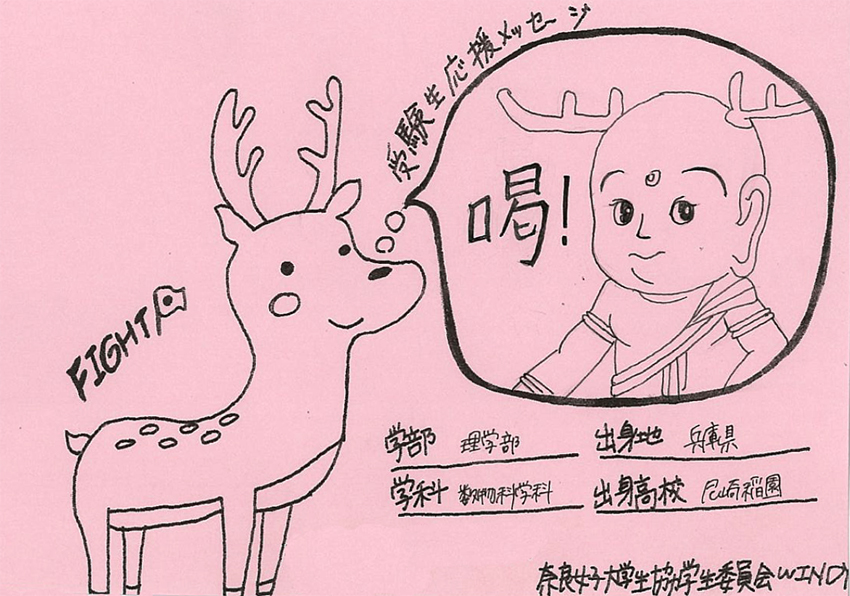 受験生応援メッセージ
喝!
FIGHT
学部 理学部
出身地 兵庫県
学科 数物科学科
出身高校 尼崎稲園
奈良女子大学生協学生委員会WINDY